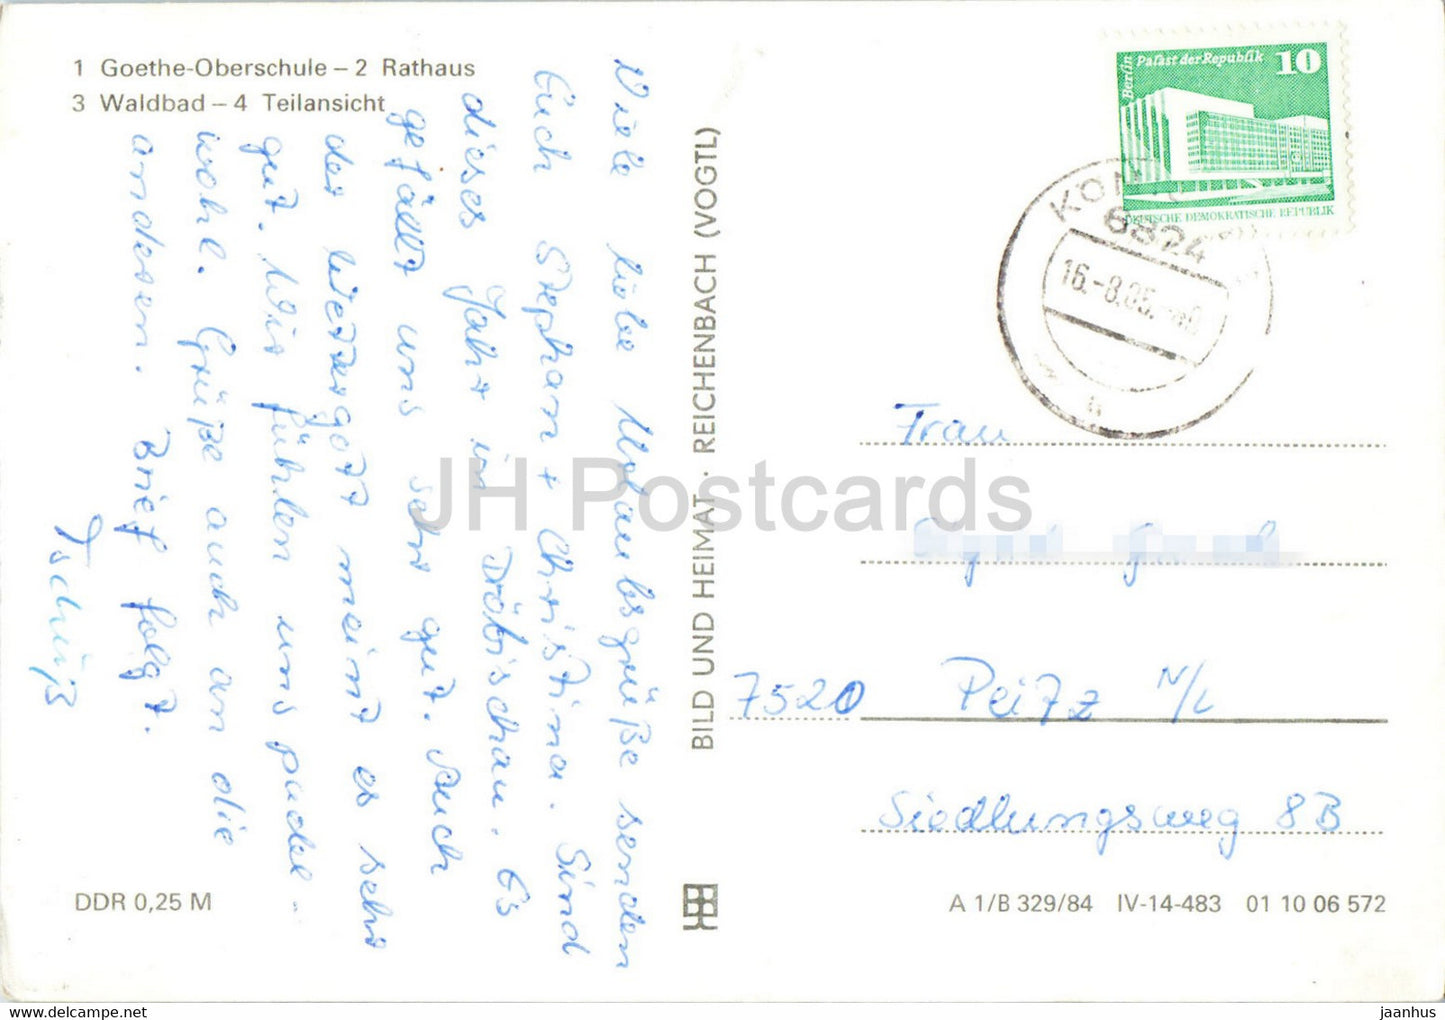 1 Goethe-Oberschule – 2 Rathaus
3 Waldbad – 4 Teilansicht
Viele liebe Urlaubsgrüße senden
Euch Stephan + Christina. Sind
dieses Jahr in Döbrischau. Es
gefällt uns sehr gut. Auch
der Wettergott meint es sehr
gut. Wir fühlen uns pudel-
wohl. Grüße auch an die
anderen. Brief folgt.
Tschüß
DDR 0,25 M
BILD UND HEIMAT · REICHENBACH (VOGTL)
Berlin Palast der Republik 10
DEUTSCHE DEMOKRATISCHE REPUBLIK
6824
16.-8.85
Frau
7520 Peitz N/L
Siedlungsweg 8B
A 1/B 329/84 IV-14-483 01 10 06 572
JH Postcards
delcampe.net
jaanhus